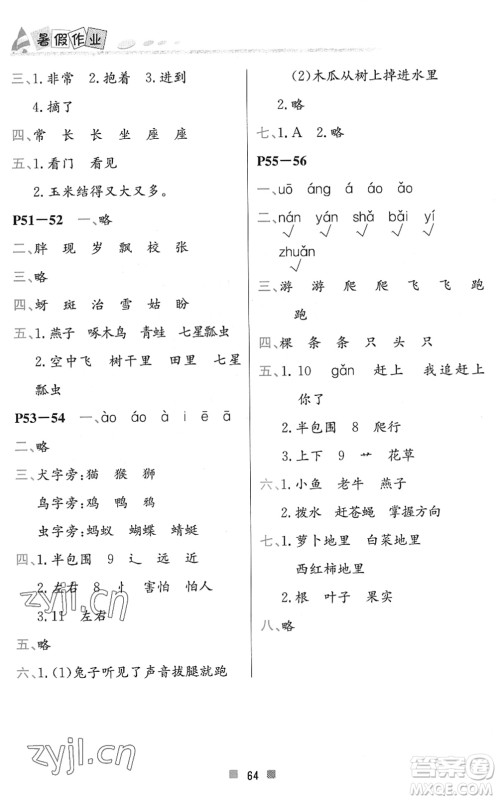 暑假作业
三、1.非常 2.抱着 3.进到
4.摘了
四、常 长 长 坐 座 座
五、1.看门 看见
2.玉米结得又大又多。
P51—52 一、略
二、胖 现 岁 飘 校 张
三、略
四、蚜 斑 治 雪 姑 盼
五、1.燕子 啄木鸟 青蛙 七星瓢虫
2.空中飞 树干里 田里 七星
瓢虫
P53—54 一、ào áo à i ē ā
二、略
三、犬字旁:猫 猴 狮
鸟字旁:鸡 鸭 鸦
虫字旁:蚂蚁 蝴蝶 蜻蜓
四、1.半包围 9 辶 远 近
2.左右 8 忄 害怕 怕人
3.11 左右
五、略
六、1.(1)兔子听见了声音拔腿就跑
(2)木瓜从树上掉进水里
2.略
七、1.A 2.略
P55—56
一、uō áng á áo ǎo
二、nán yán shǎ bǎi yí
√ √ √ √ √
zhuǎn
√
三、游 游 爬 爬 飞 飞 跑
跑
四、棵 条 条 只 头 只
五、1.10 gǎn 赶上 我追赶上
你了
2.半包围 8 爬行
3.上下 9 艹 花草
六、1.小鱼 老牛 燕子
2.拨水 赶苍蝇 掌握方向
七、1.萝卜地里 白菜地里
西红柿地里
2.根 叶子 果实
八、略
zyjl.cn
zyjl.cn
64
作业答案圈
MXQE.COM